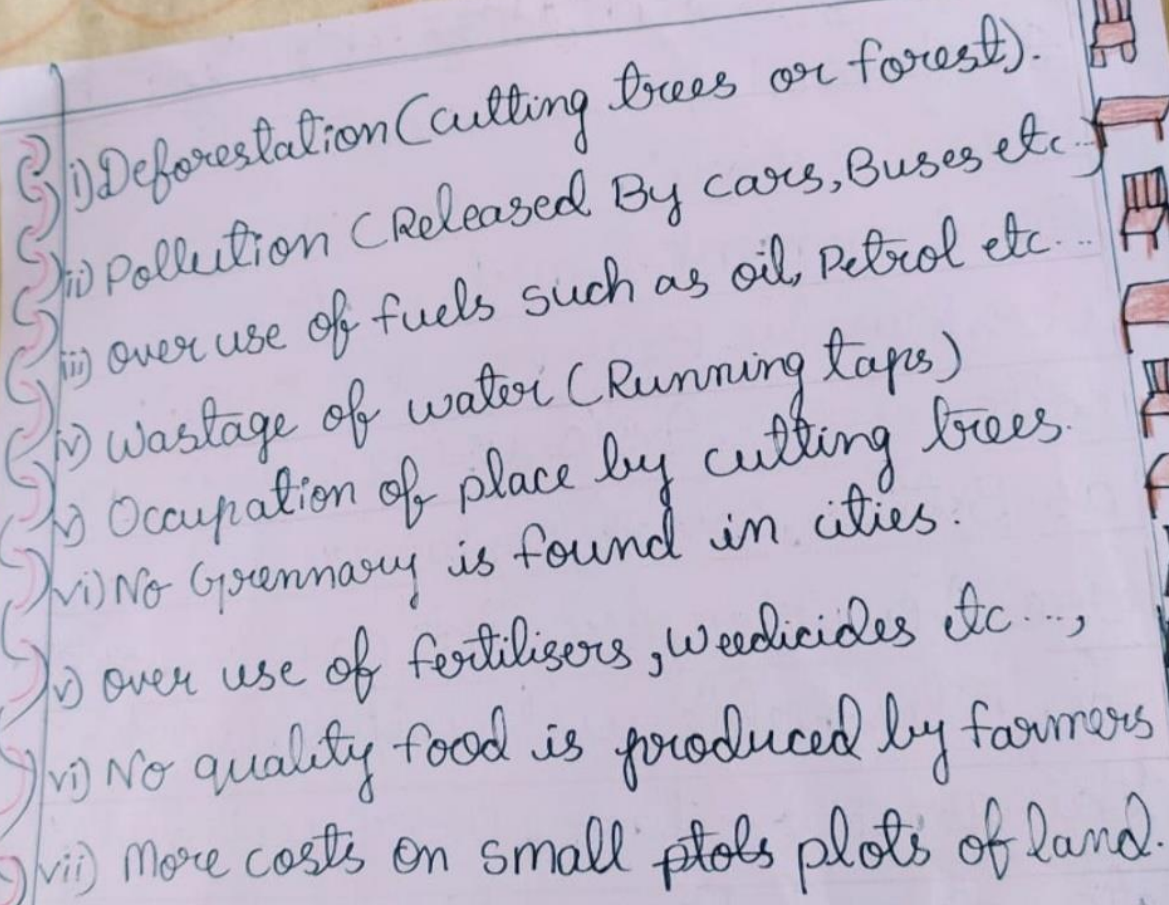 i) Deforestation (cutting trees or forest).
ii) Pollution (Released By cars, Buses etc..)
iii) over use of fuels such as oil, Petrol etc...
iv) Wastage of water (Running taps)
v) Occupation of place by cutting trees.
vi) No Grennary is found in cities.
v) over use of fertilisers, weedicides etc...,
vi) No quality food is produced by farmers
vii) More costs on small ptols plots of land.